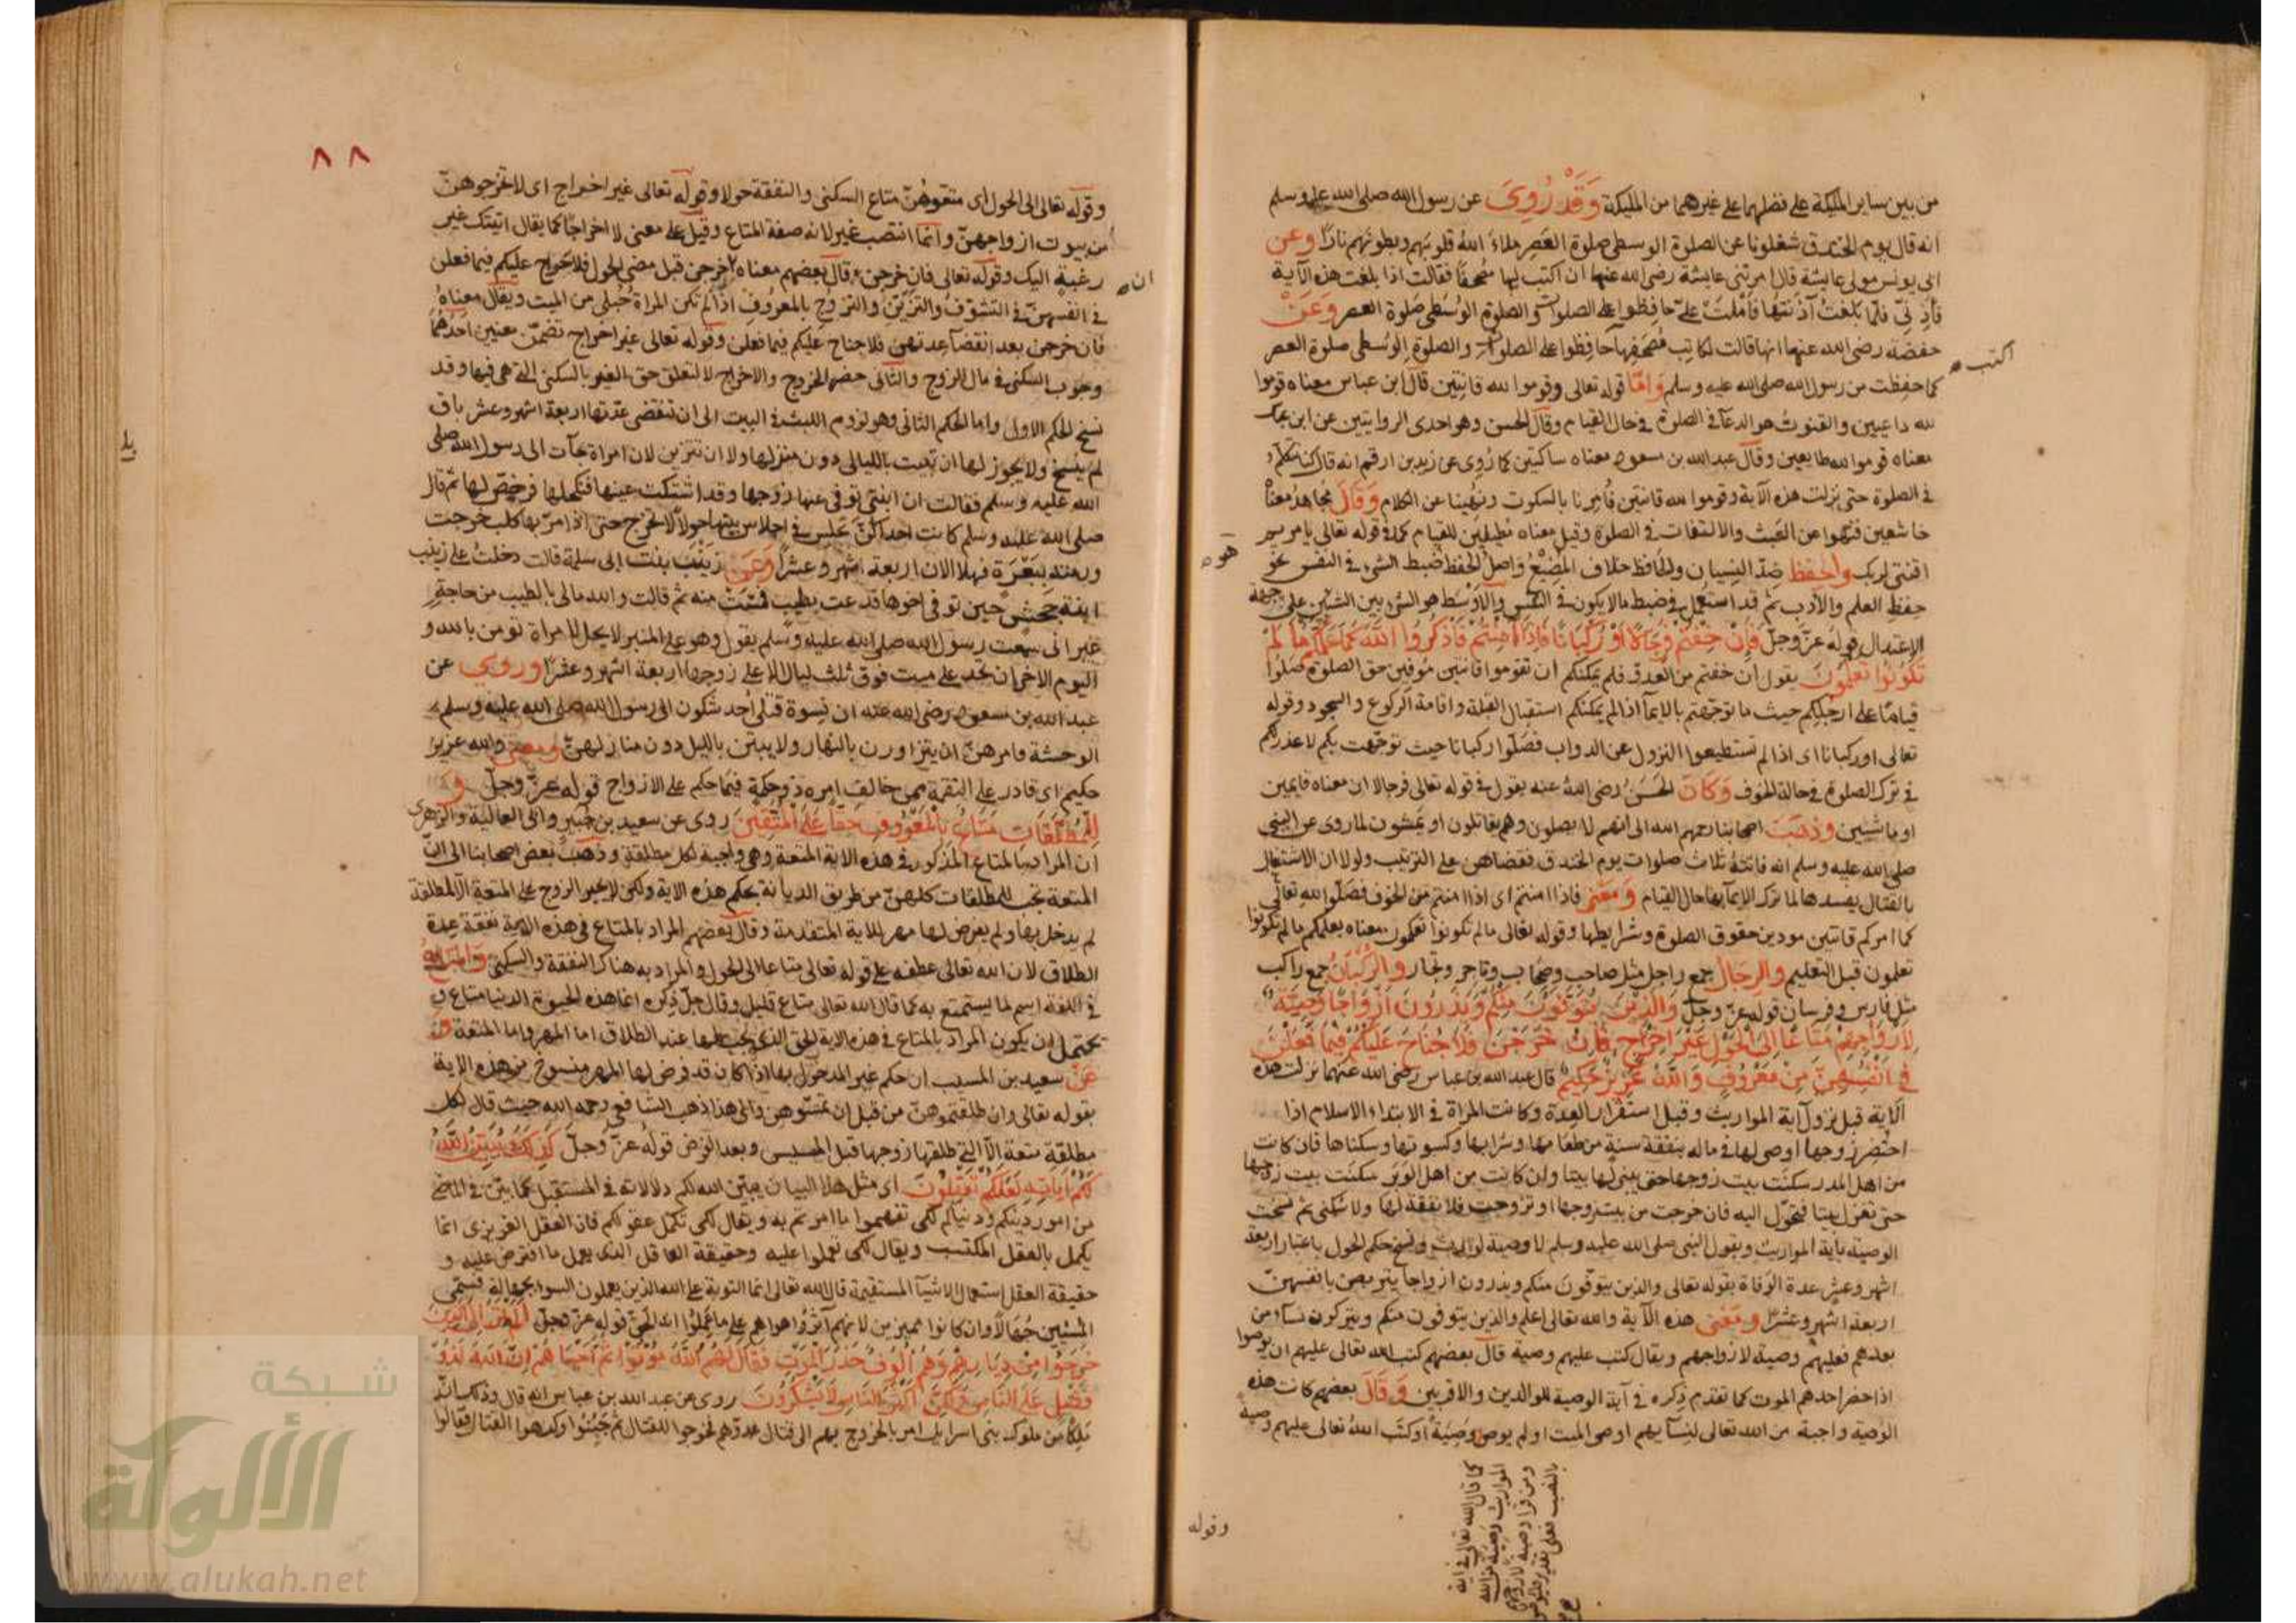 من بين ساير المليكة على فضلهما على غيرهما من المليكة وَقَدْ رُوِيَ عن رسول الله صلى الله عليه وسلم
انه قال يوم الخندق شغلونا عن الصلوة الوسطى صلوة العصر ملاء الله قلوبهم وبطونهم نارًا وعن
ابى يونس مولى عايشة قال امرتنى عايشة رضى الله عنها ان اكتب لها مصحفًا فقالت اذا بلغت هذه الآية
فآذنّى فلمّا بلغت آذنتها فاملت علىّ حافظوا على الصلوات والصلوة الوسطى صلوة العصر وَعَنْ
حفصة رضى الله عنها انها قالت لكاتب مصحفها حافظوا على الصلوات والصلوة الوسطى صلوة العصر
اكتب
كما حفظت من رسول الله صلى الله عليه وسلم وَامّا قوله تعالى وقوموا لله قانتين قال ابن عباس معناه قوموا
لله داعيين والقنوت هو الدعآ فى الصلوة فى حال القيام وقال الحسن وهو احدى الروايتين عن ابن عباس
معناه قوموا لله طايعين وقال عبد الله بن مسعود معناه ساكتين كما روى عن زيد بن ارقم انه قال كنا نتكلم
فى الصلوة حتى نزلت هذه الآية وقوموا لله قانتين فأمرنا بالسكوت ونهينا عن الكلام وَقَالَ مجاهد معناه
خاشعين فنهوا عن العبث والالتفات فى الصلوة وقيل معناه مطيلين للقيام كما فى قوله تعالى يا مريم
هو
اقنتى لربك والحفظ ضدّ النسيان والحافظ خلاف المضيّع واصل الحفظ ضبط الشئ فى النفس نحو
حفظ العلم والادب ثم قد استعمل فى ضبط ما لا يكون فى النفس والاوسط هو الشئ بين الشيئين على جهة
الاعتدال قوله عزّ وجلّ فَإِنْ خِفْتُمْ فَرِجَالًا أَوْ رُكْبَانًا فَإِذَا أَمِنْتُمْ فَاذْكُرُوا اللَّهَ كَمَا عَلَّمَكُمْ مَا لَمْ
تَكُونُوا تَعْلَمُونَ يقول ان خفتم من العدوّ فلم يمكنكم ان تقوموا قانتين موفين حق الصلوة فصلوا
قيامًا على ارجلكم حيث ما توجّهتم بالايمآ اذا لم يمكنكم استقبال القبلة واقامة الركوع والسجود وقوله
تعالى او ركبانا اى اذا لم تستطيعوا النزول عن الدواب فصلّوا ركبانا حيث توجّهت بكم لا عذر لكم
فى ترك الصلوة فى حالة الخوف وَكَانَ الحسن رضى الله عنه يقول فى قوله تعالى فرجالا ان معناه قايمين
او ماشيين وذهب اصحابنا رحمهم الله الى انهم لا يصلون وهم يقاتلون او يمشون لما روى عن النبى
صلى الله عليه وسلم انه فاتته ثلاث صلوات يوم الخندق فقضاهن على الترتيب ولولا ان الاشتغال
بالقتال يفسدها لما ترك الايمآ بها حال القيام وَمعنى فاذا امنتم اى اذا امنتم من الخوف فصلّوا لله تعالى
كما امركم قانتين مودين حقوق الصلوة وشرايطها وقوله تعالى ما لم تكونوا تعلمون معناه يعلمكم ما لم تكونوا
تعلمون قبل التعليم والرجال جمع راجل مثل صاحب وصحاب وتاجر وتجار والرُّكْبَانُ جمع راكب
مثل فارس وفرسان قوله عزّ وجلّ وَالَّذِينَ يُتَوَفَّوْنَ مِنْكُمْ وَيَذَرُونَ أَزْوَاجًا وَصِيَّةً
لِأَزْوَاجِهِمْ مَتَاعًا إِلَى الْحَوْلِ غَيْرَ إِخْرَاجٍ فَإِنْ خَرَجْنَ فَلَا جُنَاحَ عَلَيْكُمْ فِيمَا فَعَلْنَ
فِي أَنْفُسِهِنَّ مِنْ مَعْرُوفٍ وَاللَّهُ عَزِيزٌ حَكِيمٌ قال عبد الله بن عباس رضى الله عنهما نزلت هذه
الآية قبل نزول آية المواريث وقبل استقرار العدة وكانت المراة فى الابتداء الاسلام اذا
احتضر زوجها اوصى لها فى ماله بنفقة سنة من طعامها وشرابها وكسوتها وسكناها فان كانت
من اهل المدر سكنت بيت زوجها حتى يبنى لها بيتا وان كانت من اهل الوبر سكنت بيت زوجها
حتى تغزل بيتا فتحوّل اليه فان خرجت من بيت زوجها او تزوجت فلا نفقة لها ولا سكنى ثم نسخت
الوصية بآية المواريث وبقول النبى صلى الله عليه وسلم لا وصية لوارث ونسخ حكم الحول باعتبار اربعة
اشهر وعشر عدة الوفاة بقوله تعالى والذين يتوفّون منكم ويذرون ازواجا يتربصن بانفسهنّ
اربعة اشهر وعشرًا وَمَعْنى هذه الآية والله تعالى اعلم والذين يتوفون منكم ويتركون نسآء من
بعدهم فعليهم وصية لازواجهم ويقال كتب عليهم وصية قال بعضهم كتب الله تعالى عليهم ان يوصوا
اذا حضر احدهم الموت كما تقدم ذكره فى آية الوصية للوالدين والاقربين وَقَالَ بعضهم كانت هذه
الوصية واجبة من الله تعالى لنسآيهم اوصى الميت او لم يوص وصية او كتب الله تعالى عليهم وصية
كما قال الله تعالى فى آية
المواريث وصية من الله
ومن قرا وصية لازواجهم
بالنصب فعلى تقدير فليوصوا
وقوله
٨٨
وقوله تعالى الى الحول اى متعوهُنّ متاع السكنى والنفقة حولا وقوله تعالى غير اخراج اى لا تخرجوهنّ
من بيوت ازواجهنّ وانّما انتصب غير لانه صفة المتاع وقيل على معنى لا اخراجًا كما يقال اتيتك غير
رغبة اليك وقوله تعالى فان خرجن وقال بعضهم معناه خرجن قبل مضى الحول فلا حرج عليكم فيما فعلن
ان
فى انفسهنّ فى التشوّف والتزيّن والتزوّج بالمعروف اذا لم تكن المراة حُبلى من الميت ويقال معناهُ
فان خرجن بعد انقضآ عدتهن فلا جناح عليكم فيما فعلن وقوله تعالى غير اخراج تضمّن معنيين احدهما
وجوب السكنى فى مال الزوج والثانى حضر الخروج والاخراج لا لتعلق حق الغير بالسكنى التى هى فيها وقد
نسخ الحكم الاول واما الحكم الثانى وهو لزوم اللبث فى البيت الى ان تنقضى عدّتها اربعة اشهر وعشر باق
لم ينسخ ولا يجوز لها ان تبيت بالليالى دون منزلها ولا ان تتزين لان امراة جآت الى رسول الله صلى
الله عليه وسلم فقالت ان ابنتى توفى عنها زوجها وقد اشتكت عينها فنكحلها فرخّص لها ثم قال
صلى الله عليه وسلم كانت احداكنّ تجلس فى احلاس بيتها حولًا لا تخرج حتى اذا مرّ بها كلب خرجت
ورمته ببَعْرَة فهلا الان اربعة اشهر وعشرًا وَعَنْ زَيْنَبَ بنت ابى سلمة قالت دخلت على زينب
ابنة جحش حين توفى اخوها فدعت بطيب فمسّت منه ثم قالت والله مالى بالطيب من حاجةٍ
غير انى سمعت رسول الله صلى الله عليه وسلم يقول وهو على المنبر لا يحل لامراة تومن بالله و
اليوم الاخر ان تحد على ميت فوق ثلث ليال الا على زوجها اربعة اشهر وعشرًا وروى عن
عبد الله بن مسعود رضى الله عنه ان نسوة قتلى اُحد شكون الى رسول الله صلى الله عليه وسلم
الوحشة وامرهنّ ان يتزاورن بالنهار ولا يبتن بالليل دون منازلهنّ ومعنى والله عزيز
حكيم اى قادر على النقمة ممن خالف امره ذو حكمة فيما حكم على الازواج قوله عزّ وجلّ وَ
لِلْمُطَلَّقَاتِ مَتَاعٌ بِالْمَعْرُوفِ حَقًّا عَلَى الْمُتَّقِينَ روى عن سعيد بن جبير وابى العالية والزهرى
ان المراد بالمتاع المذكور فى هذه الاية المتعة وهى واجبة لكل مطلقة وذهب بعض اصحابنا الى انّ
المتعة تجب للمطلقات كلهنّ من طريق الديانة بحكم هذه الاية ولكن لا يجبر الزوج على المتعة الا لمطلقة
لم يدخل بها ولم يفرض لها مهر للاية المتقدمة وقال بعضهم المراد بالمتاع فى هذه الاية نفقة عدة
الطلاق لان الله تعالى عطفه على قوله تعالى متاعا الى الحول والمراد به هناك النفقة والسكنى وَالْمَتَاعُ
فى اللغة اسم لما يستمتع به كما قال الله تعالى متاع قليل وقال جلّ ذكره انما هذه الحيوة الدنيا متاع و
يحتمل ان يكون المراد بالمتاع فى هذه الاية الحق الذى يجب لها عند الطلاق اما المهر واما المتعة وَ
عَنْ سعيد بن المسيب ان حكم غير المدخول بها اذا كان قد فرض لها المهر منسوخ من هذه الاية
بقوله تعالى وان طلقتموهنّ من قبل ان تمسّوهن والى هذا ذهب الشافعى رحمه الله حيث قال لكل
مطلقة متعة الّا التى طلقها زوجها قبل المسيس وبعد الفرض قوله عزّ وجلّ كَذَلِكَ يُبَيِّنُ اللَّهُ
لَكُمْ آيَاتِهِ لَعَلَّكُمْ تَعْقِلُونَ اى مثل هذا البيان يبيّن الله لكم دلالاته فى المستقبل كما بيّن فى الماضى
من امور دينكم ودنياكم لكى تفهموا ما امرتم به ويقال لكى تكمل عقولكم فان العقل الغريزى انما
يكمل بالعقل المكتسب ويقال لكى تعملوا عليه وحقيقة العاقل الذى يعمل ما افترض عليه و
حقيقة العقل استعمال الاشيآ المستقيمة قال الله تعالى انما التوبة على الله للذين يعملون السوء بجهالة فسمّى
المسيئين جهّالًا وان كانوا مميزين لانهم آثروا هواهم على ما علموا انه الحق قوله عزّ وجلّ أَلَمْ تَرَ إِلَى الَّذِينَ
خَرَجُوا مِنْ دِيَارِهِمْ وَهُمْ أُلُوفٌ حَذَرَ الْمَوْتِ فَقَالَ لَهُمُ اللَّهُ مُوتُوا ثُمَّ أَحْيَاهُمْ إِنَّ اللَّهَ لَذُو
فَضْلٍ عَلَى النَّاسِ وَلَكِنَّ أَكْثَرَ النَّاسِ لَا يَشْكُرُونَ روى عن عبد الله بن عباس انه قال وذلك انّ
ملكًا من ملوك بنى اسرايل امر بالخروج بهم الى قتال عدوّهم فخرجوا للقتال ثم جَبُنُوا وكرهوا القتال فقالوا
شبكة
الألوكة
www.alukah.net